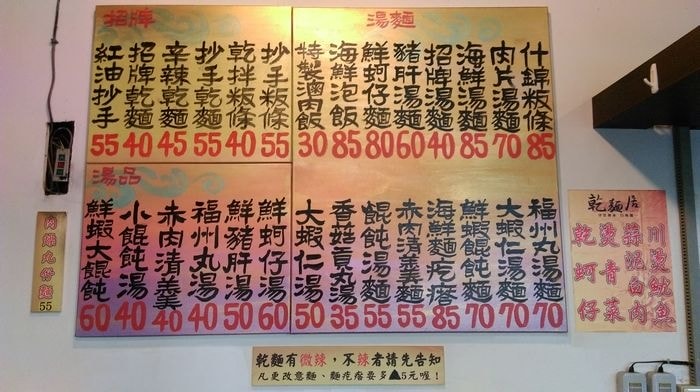 招牌
紅油抄手 55
招牌乾麵 40
辛辣乾麵 45
抄手乾麵 55
乾拌粄條 40
抄手粄條 55
湯麵
特製滷肉飯 30
海鮮泡飯 85
鮮蚵仔麵 80
豬肝湯麵 60
招牌湯麵 40
海鮮湯麵 85
肉片湯麵 70
什錦粄條 85
湯品
鮮蝦大餛飩 60
小餛飩湯 40
赤肉清羹 40
福州丸湯 40
鮮豬肝湯 50
鮮蚵仔湯 60
大蝦仁湯 50
香菇貢丸湯 35
餛飩湯麵 55
赤肉清羹麵 55
海鮮麵疙瘩 85
鮮蝦餛飩麵 70
大蝦仁湯麵 70
福州丸湯麵 70
丸仔麵
55
乾麵店
川燙魷魚
蒜泥白肉
燙青菜
乾蚵仔
乾麵有微辣，不辣者請先告知
凡更改意麵、麵疙瘩要多▲5元喔！